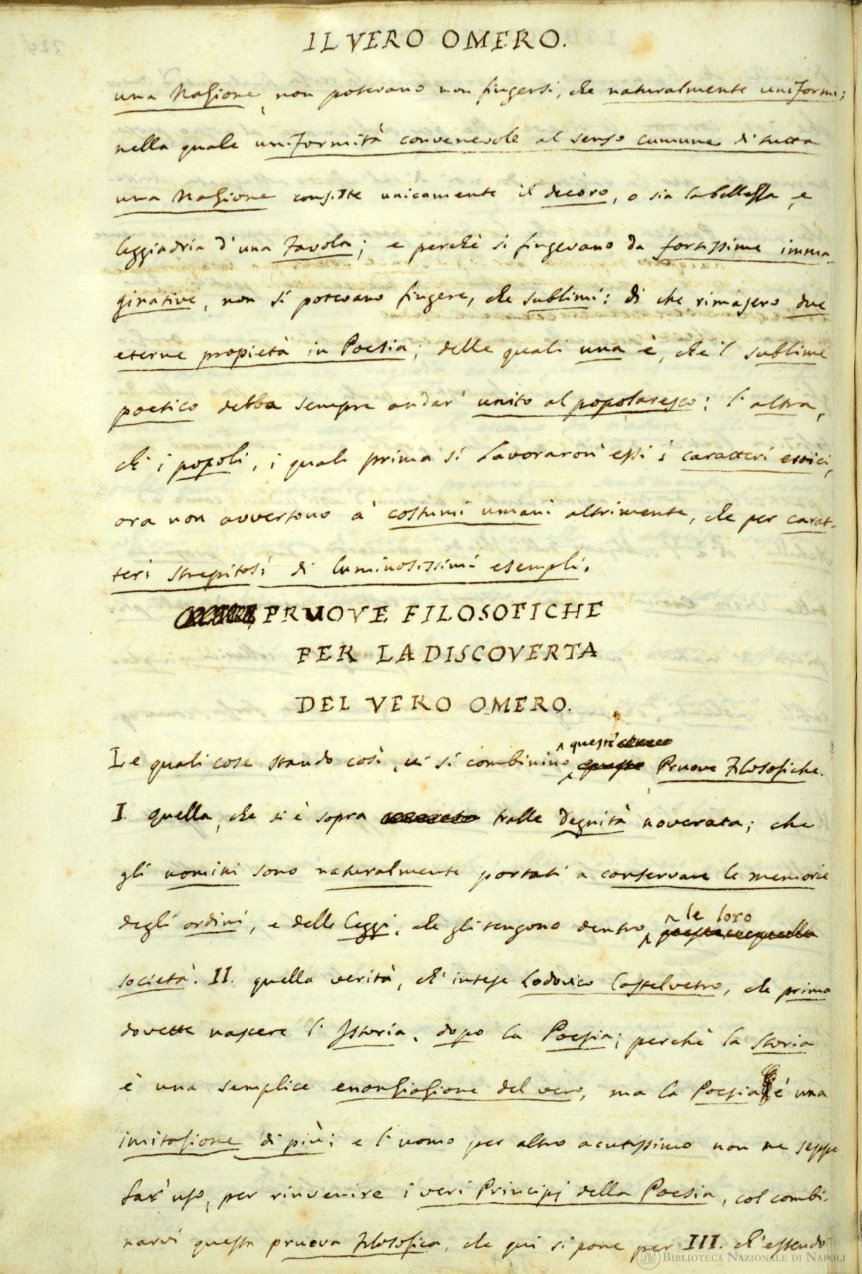 IL VERO OMERO.
una Nazione, non potevano non fingersi, che naturalmente uniformi;
nella quale uniformità convenevole al senso cumune di tutta
una Nazione consiste unicamente il decoro, o sia la bellezza, e
leggiadria d'una Favola; e perchè si fingevano da fortissime imma-
ginative, non si potevano fingere, che sublimi: di che rimasero due
eterne propietà in Poesia; delle quali una è, che 'l sublime
poetico debba sempre andar' unito al popolaresco: l'altra,
ch' i popoli, i quali prima si lavoraron' essi i caratteri eroici,
ora non avvertono a' costumi umani altrimente, che per carat-
teri strepitosi di luminosissimi esempli.
PRUOVE FILOSOFICHE
PER LA DISCOVERTA
DEL VERO OMERO.
Le quali cose stando così, vi si combinino queste Pruove Filosofiche.
I quella, che si è sopra tralle Degnità noverata; che
gli uomini sono naturalmente portati a conservare le memorie
degli ordini, e delle leggi, che gli tengono dentro le loro
società. II. quella verità, ch' intese Lodovico Castelvetro, che prima
dovette nascere l'Istoria, dopo la Poesia; perchè la Storia
è una semplice enonziazione del vero, ma la Poesia è una
imitazione di più; e l'uomo per altro acutissimo non ne seppe
far' uso, per rinvenire i veri Principj della Poesia, col combi-
narvi questa pruova Filosofica, che qui si pone per III. ch' essendo
BIBLIOTECA NAZIONALE DI NAPOLI